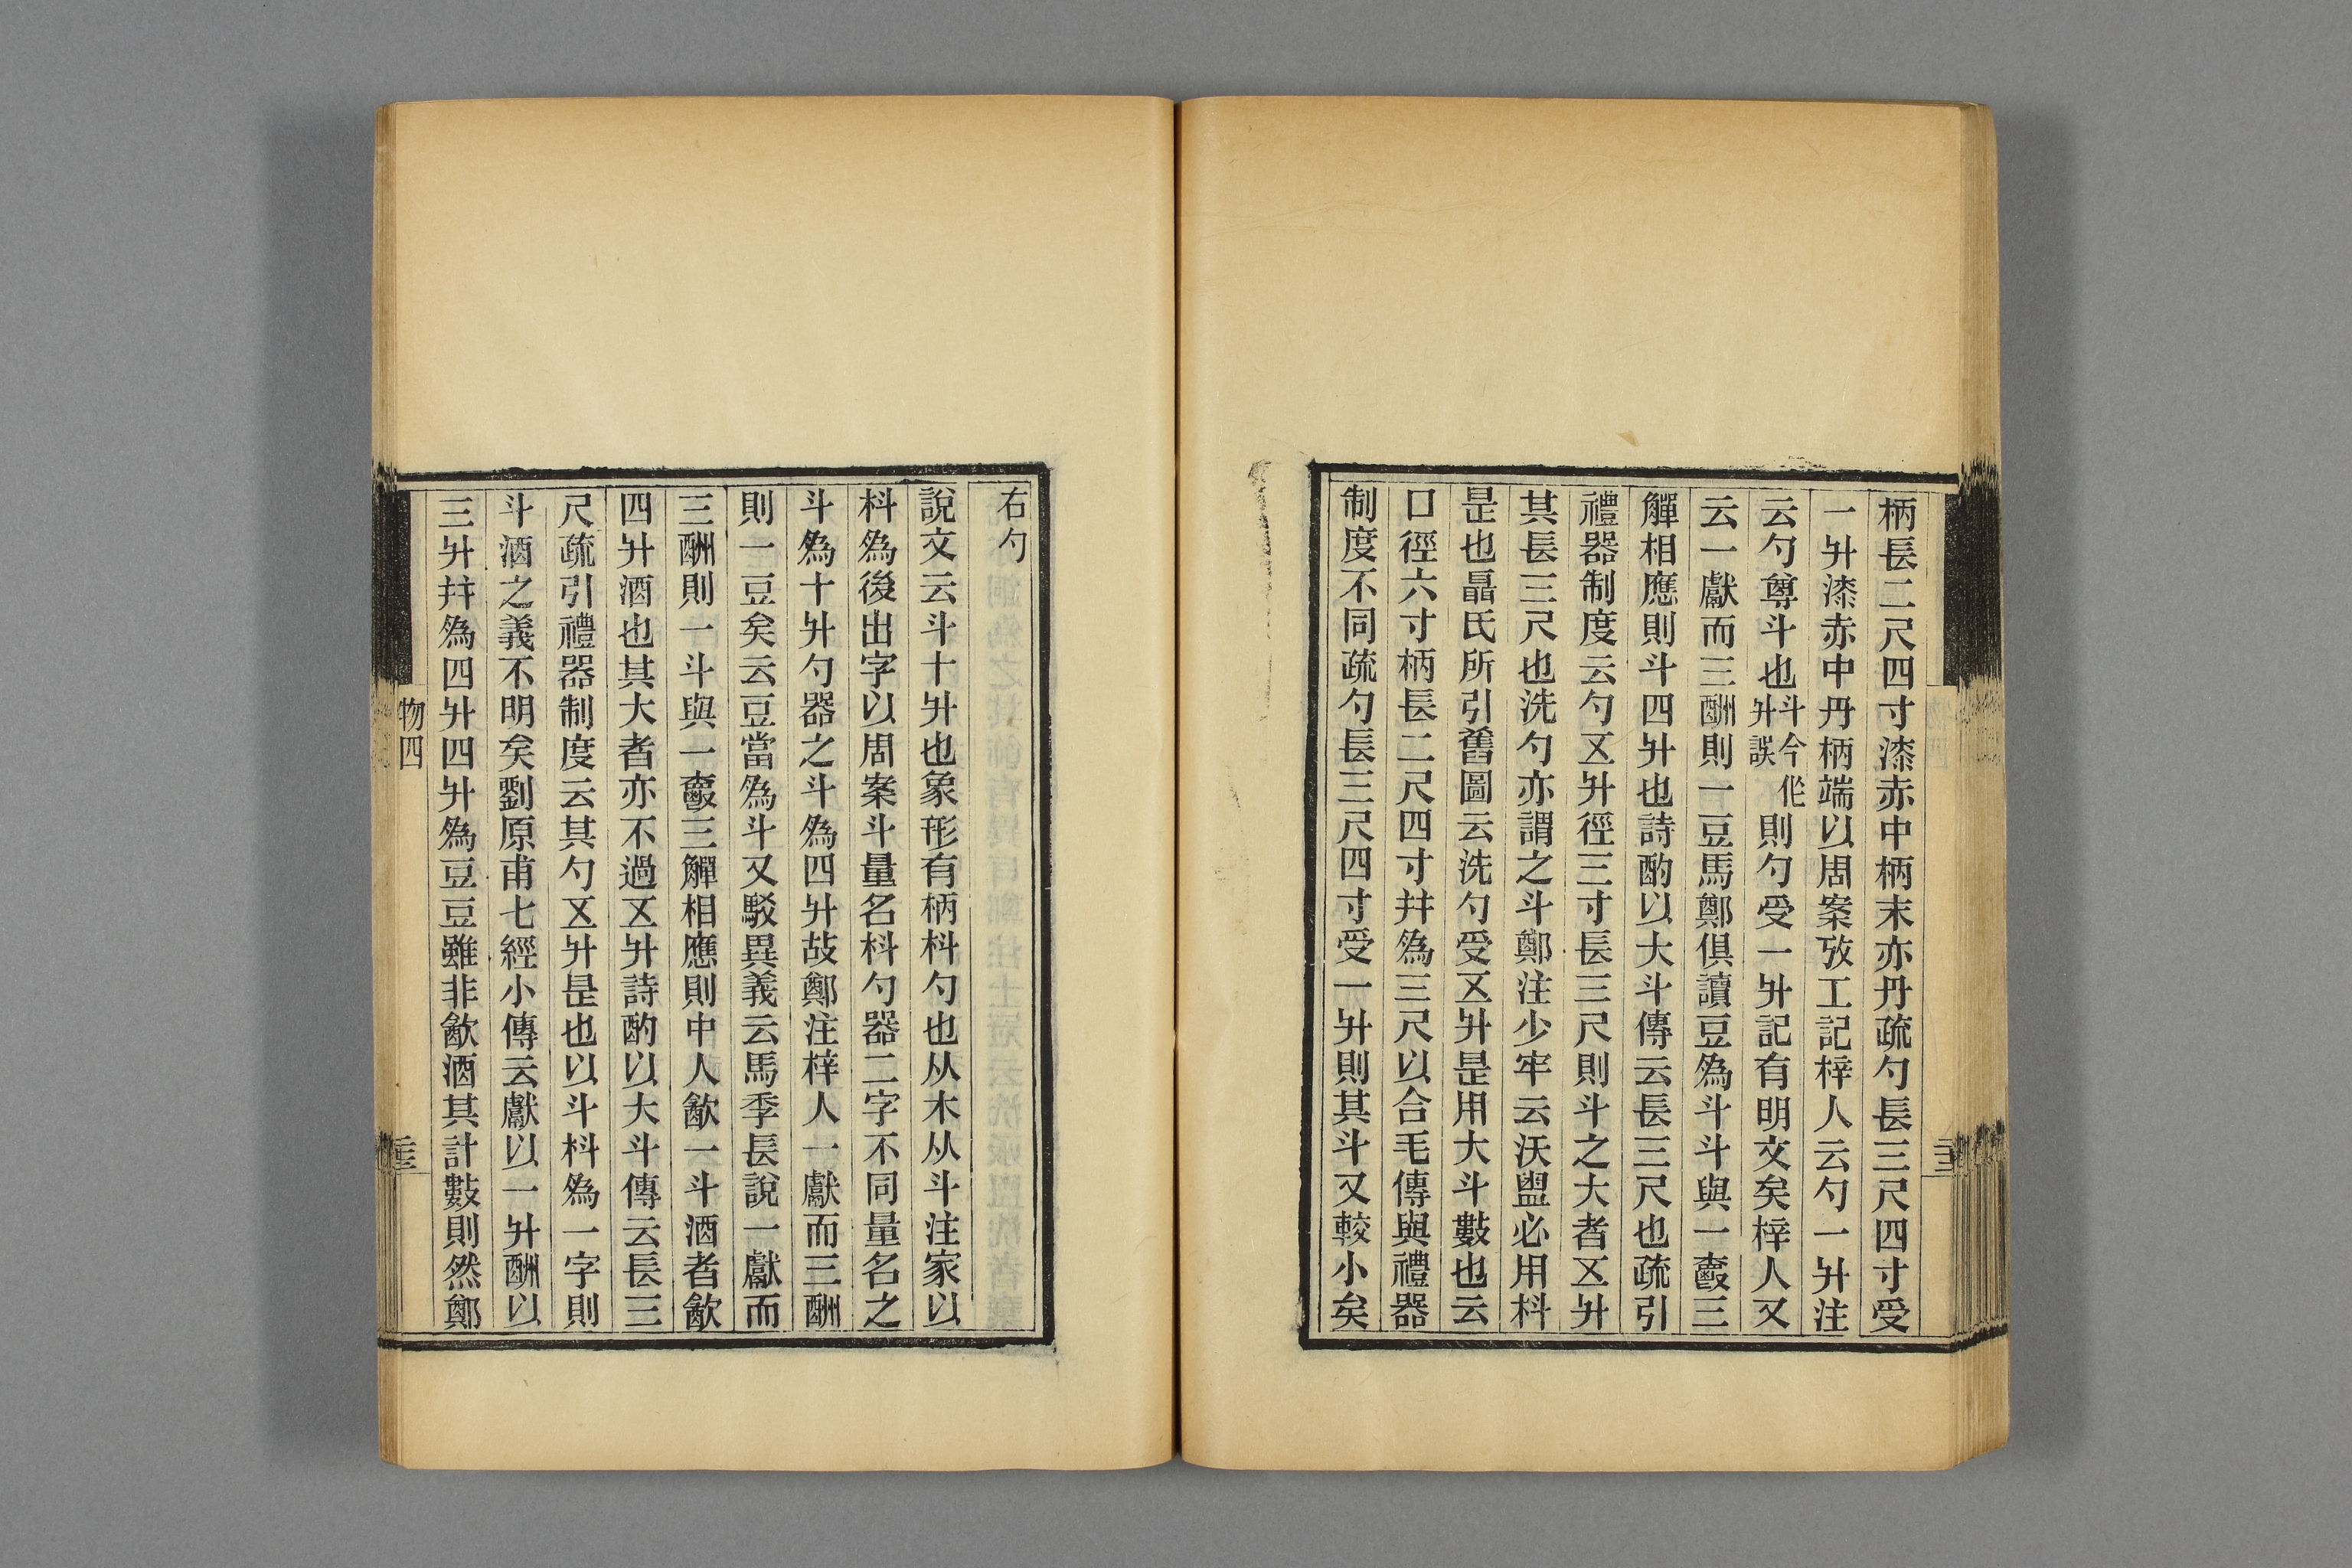 柄長二尺四寸漆赤中柄末亦丹疏勺長三尺四寸受
一升漆赤中丹柄端以周案攷工記梓人云勺一升注
云勺尊斗也斗今作升誤則勺受一升記有明文矣梓人又
云一獻而三酬則一豆馬鄭俱讀豆為斗斗與一𧯷三
觶相應則斗四升也詩酌以大斗傳云長三尺也疏引
禮器制度云勺五升徑三寸長三尺則斗之大者五升
其長三尺也洗勺亦謂之斗鄭注少牢云沃盥必用枓
是也聶氏所引舊圖云洗勺受五升是用大斗數也云
口徑六寸柄長二尺四寸并為三尺以合毛傳與禮器
制度不同疏勺長三尺四寸受一升則其斗又較小矣
右勺
說文云斗十升也象形有柄枓勺也从木从斗注家以
枓為後出字以周案斗量名枓勺器二字不同量名之
斗為十升勺器之斗為四升故鄭注梓人一獻而三酬
則一豆矣云豆當為斗又駁異義云馬季長說一獻而
三酬則一斗與一𧯷三觶相應則中人飲一斗酒者飲
四升酒也其大者亦不過五升詩酌以大斗傳云長三
尺疏引禮器制度云其勺五升是也以斗枓為一字則
斗酒之義不明矣劉原甫七經小傳云獻以一升酬以
三升并為四升四升為豆豆雖非飲酒其計數則然鄭
物四